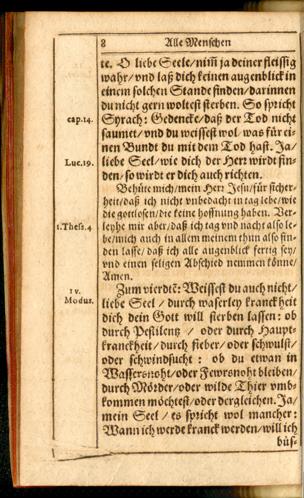 8 Alle Menschen
te. O liebe Seele/nim̃ ja deiner fleissig
wahr/vnd laß dich keinen augenblick in
einem solchen Stande finden/darinnen
du nicht gern woltest sterben. So spricht
cap.14. Syrach: Gedencke/daß der Tod nicht
saumet/vnd du weissest wol was für ei-
nen Bundt du mit dem Tod hast. Ja/
Luc.19. liebe Seel/wie dich der Herr wirdt fin-
den/so wirdt er dich auch richten.
Behüte mich/mein Herr Jesu/für sicher-
heit/daß ich nicht vnbedacht in tag lebe/wie
die gottlosen/die keine hoffnung haben. Ver-
1.Thess.4 leyhe mir aber/daß ich tag vnd nacht also le-
be/mich auch in allem meinem thun also fin-
den lasse/daß ich alle augenblick fertig sey/
vnd einen seligen Abschied nemmen könne/
Amen.
IV. Zum vierdtẽ: Weissest du auch nicht/
Modus. liebe Seel/durch waserley kranckheit
dich dein Gott will sterben lassen: ob
durch Pestilentz / oder durch Haupt-
kranckheit/durch fieber/oder schwulst/
oder schwindsucht : ob du etwan in
Wassersnoht/oder Fewrsnoht bleiben/
durch Mörder/oder wilde Thier vmb-
kommen möchtest/oder dergleichen. Ja/
mein Seel / es spricht wol mancher:
Wann ich werde kranck werden/will ich
büs-